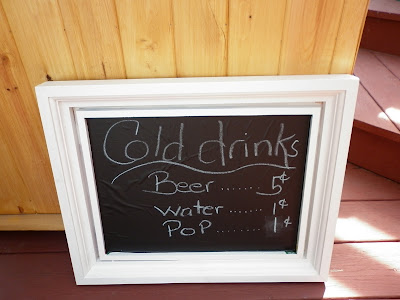 Cold drinks
Beer ....... 5¢
Water ...... 1¢
Pop ........ 1¢